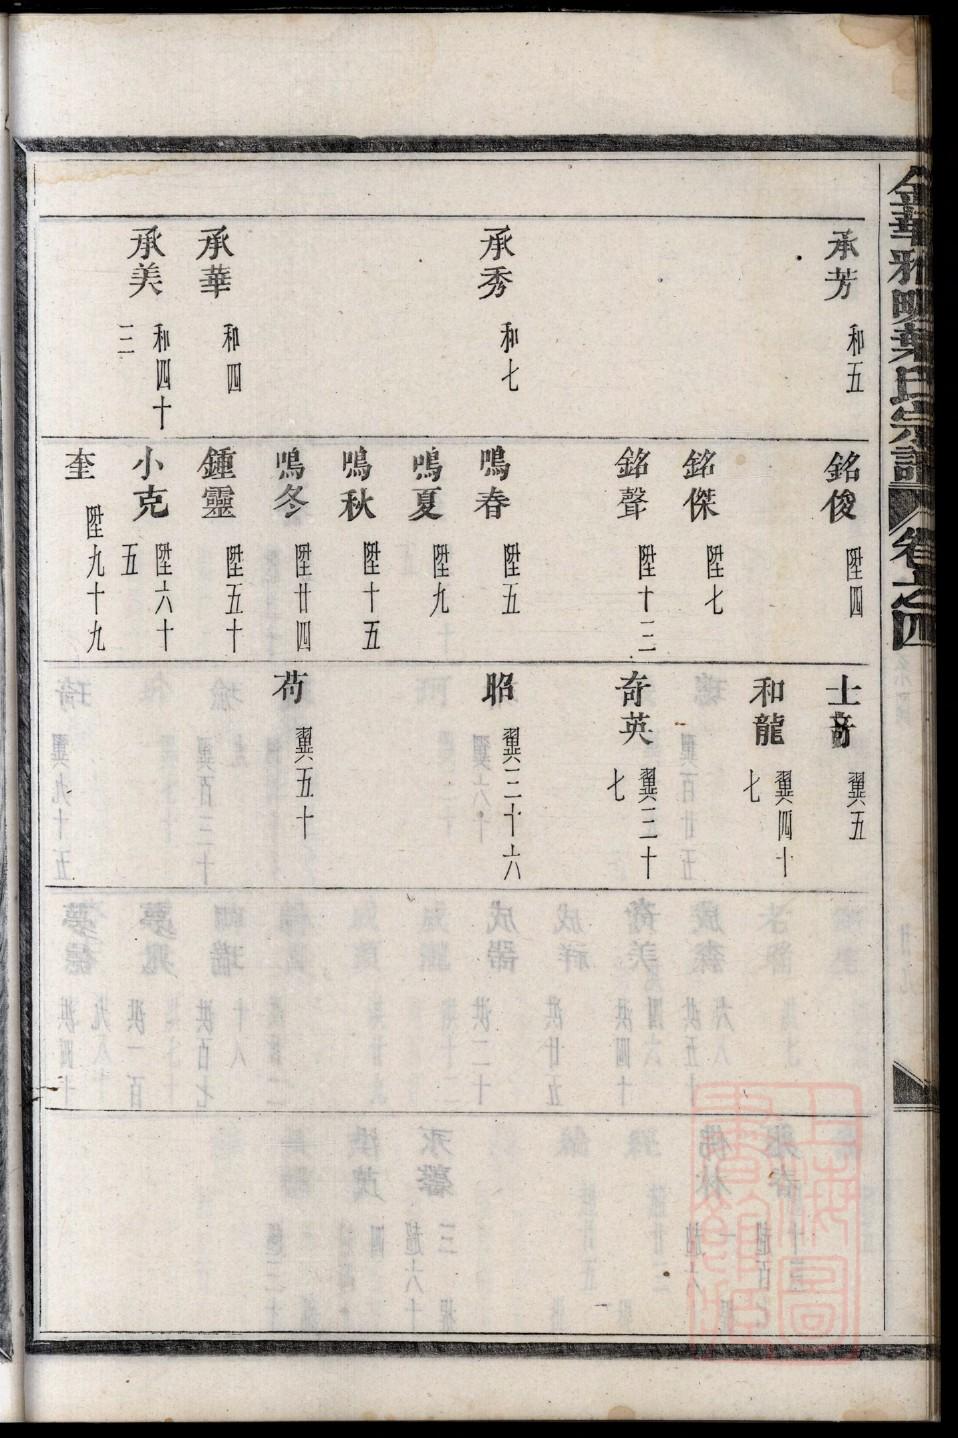 金華雅畈葉氏宗譜 卷之四
承芳 和五
承秀 和七
承華 和四
承美 和四十三
銘俊 陞四
銘傑 陞七
銘聲 陞十三
鳴春 陞五
鳴夏 陞九
鳴秋 陞十五
鳴冬 陞廿四
鍾靈 陞五十
小克 陞六十五
奎 陞九十九
士奇 翼五
和龍 翼四十七
奇英 翼三十七
昭 翼三十六
苟 翼五十
上海圖書館藏